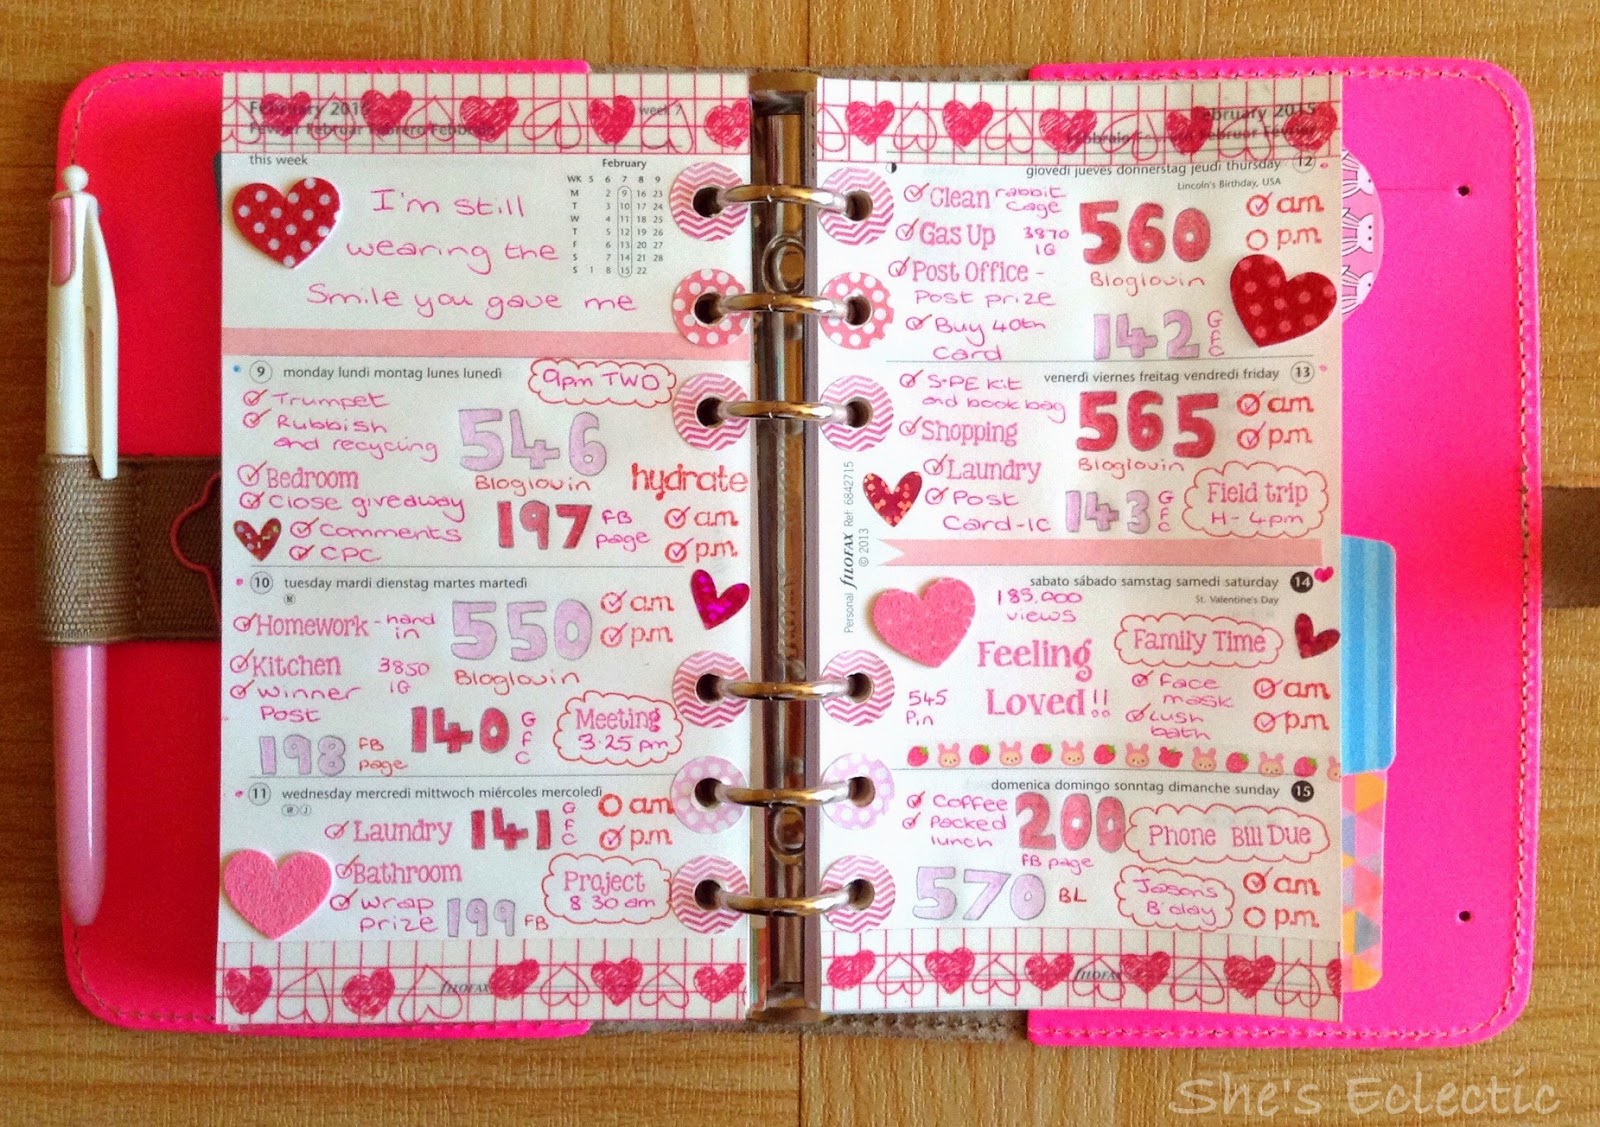 February 2015
week 7
Février Februar Febrero Febbraio
this week
February
WK 5 6 7 8 9
M 2 9 16 23
T 3 10 17 24
W 4 11 18 25
T 5 12 19 26
F 6 13 20 27
S 7 14 21 28
S 1 8 15 22
I'm still
wearing the
Smile you gave me
9 monday lundi montag lunes lunedì
9pm TWD
Trumpet
Rubbish
and recycling
Bedroom
Close giveaway
Comments
CPC
546
Bloglovin
197 FB
page
hydrate
am
p.m
10 tuesday mardi dienstag martes martedì
Homework - hand
in
Kitchen
3850
IG
Winner
Post
550
Bloglovin
am
p.m
198 FB
page
140 GFC
Meeting
3.25 pm
11 wednesday mercredi mittwoch miércoles mercoledì
Laundry
141 GFC
am
p.m
Bathroom
Wrap
prize
199 FB
Project
8.30 am
FILOFAX
February 2015
Febbraio Februar Février
giovedì jueves donnerstag jeudi thursday 12
Lincoln's Birthday, USA
Clean rabbit
cage
Gas Up
3870
IG
Post Office -
Post prize
Buy 40th
Card
560
Bloglovin
142 GFC
am
p.m
venerdì viernes freitag vendredi friday 13
S-PE kit
and book bag
Shopping
Laundry
Post
Card-IC
565
Bloglovin
143 GFC
am
p.m
Field trip
H- 4pm
Personal FILOFAX Ref: 6842715
© 2013
sabato sábado samstag samedi saturday 14
St. Valentine's Day
185,000
views
Feeling
Loved!!
545
Pin
Family Time
Face
mask
Lush
bath
am
p.m
domenica domingo sonntag dimanche sunday 15
Coffee
Packed
lunch
200
FB page
Phone Bill Due
570 BL
Jasons
B'day
am
p.m
FILOFAX
She's Eclectic